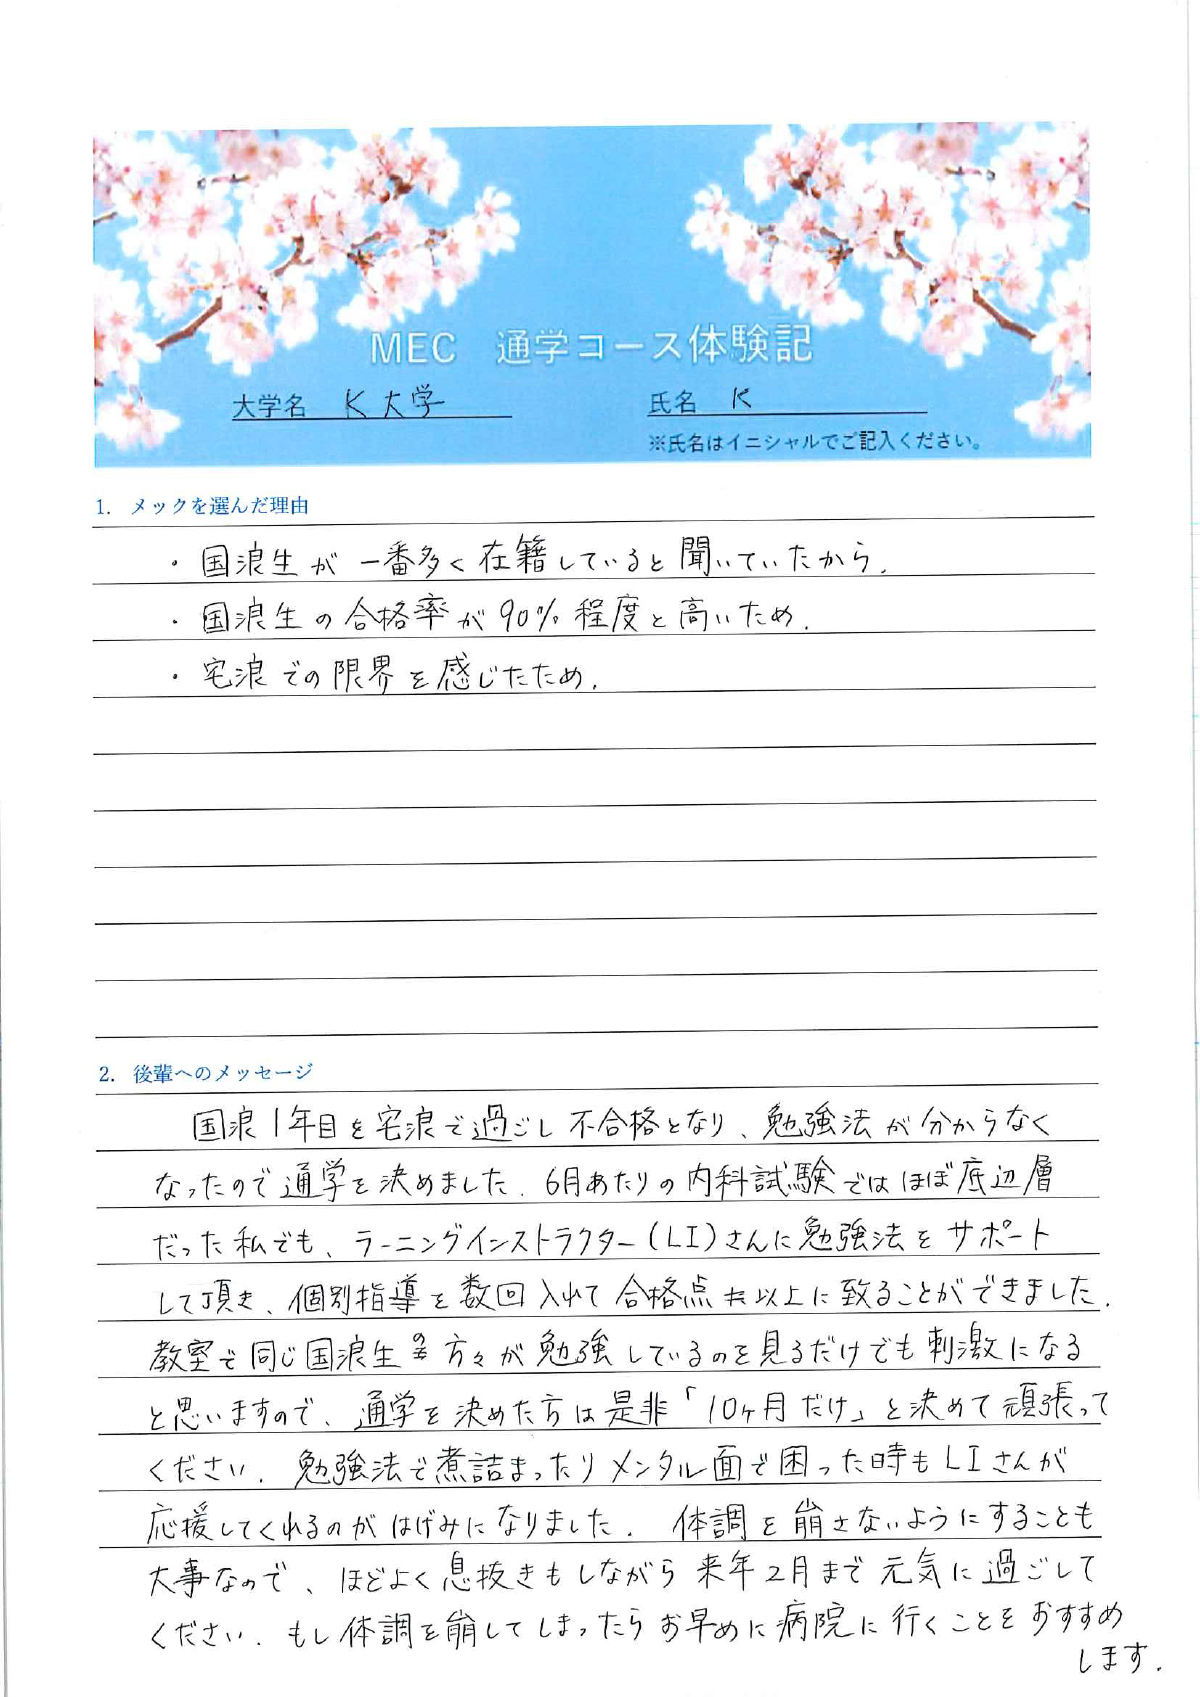 MEC 通学コース体験記
大学名 K大学 氏名 K
※氏名はイニシャルでご記入ください。
1. メックを選んだ理由
・国浪生が一番多く在籍していると聞いていたから.
・国浪生の合格率が90%程度と高いため.
・宅浪での限界を感じたため.
2. 後輩へのメッセージ
国浪1年目を宅浪で過ごし不合格となり、勉強法が分からなく
なったので通学を決めました. 6月あたりの内科試験ではほぼ底辺層
だった私でも、ラーニングインストラクター(LI)さんに勉強法をサポート
して頂き、個別指導を数回入れて合格点以上に致ることができました.
教室で同じ国浪生の方々が勉強しているのを見るだけでも刺激になる
と思いますので、通学を決めた方は是非「10ヶ月だけ」と決めて頑張って
ください. 勉強法で煮詰まったりメンタル面で困った時もLIさんが
応援してくれるのがはげみになりました. 体調を崩さないようにすることも
大事なので、ほどよく息抜きもしながら来年2月まで元気に過ごして
ください. もし体調を崩してしまったらお早めに病院に行くことをおすすめ
します.